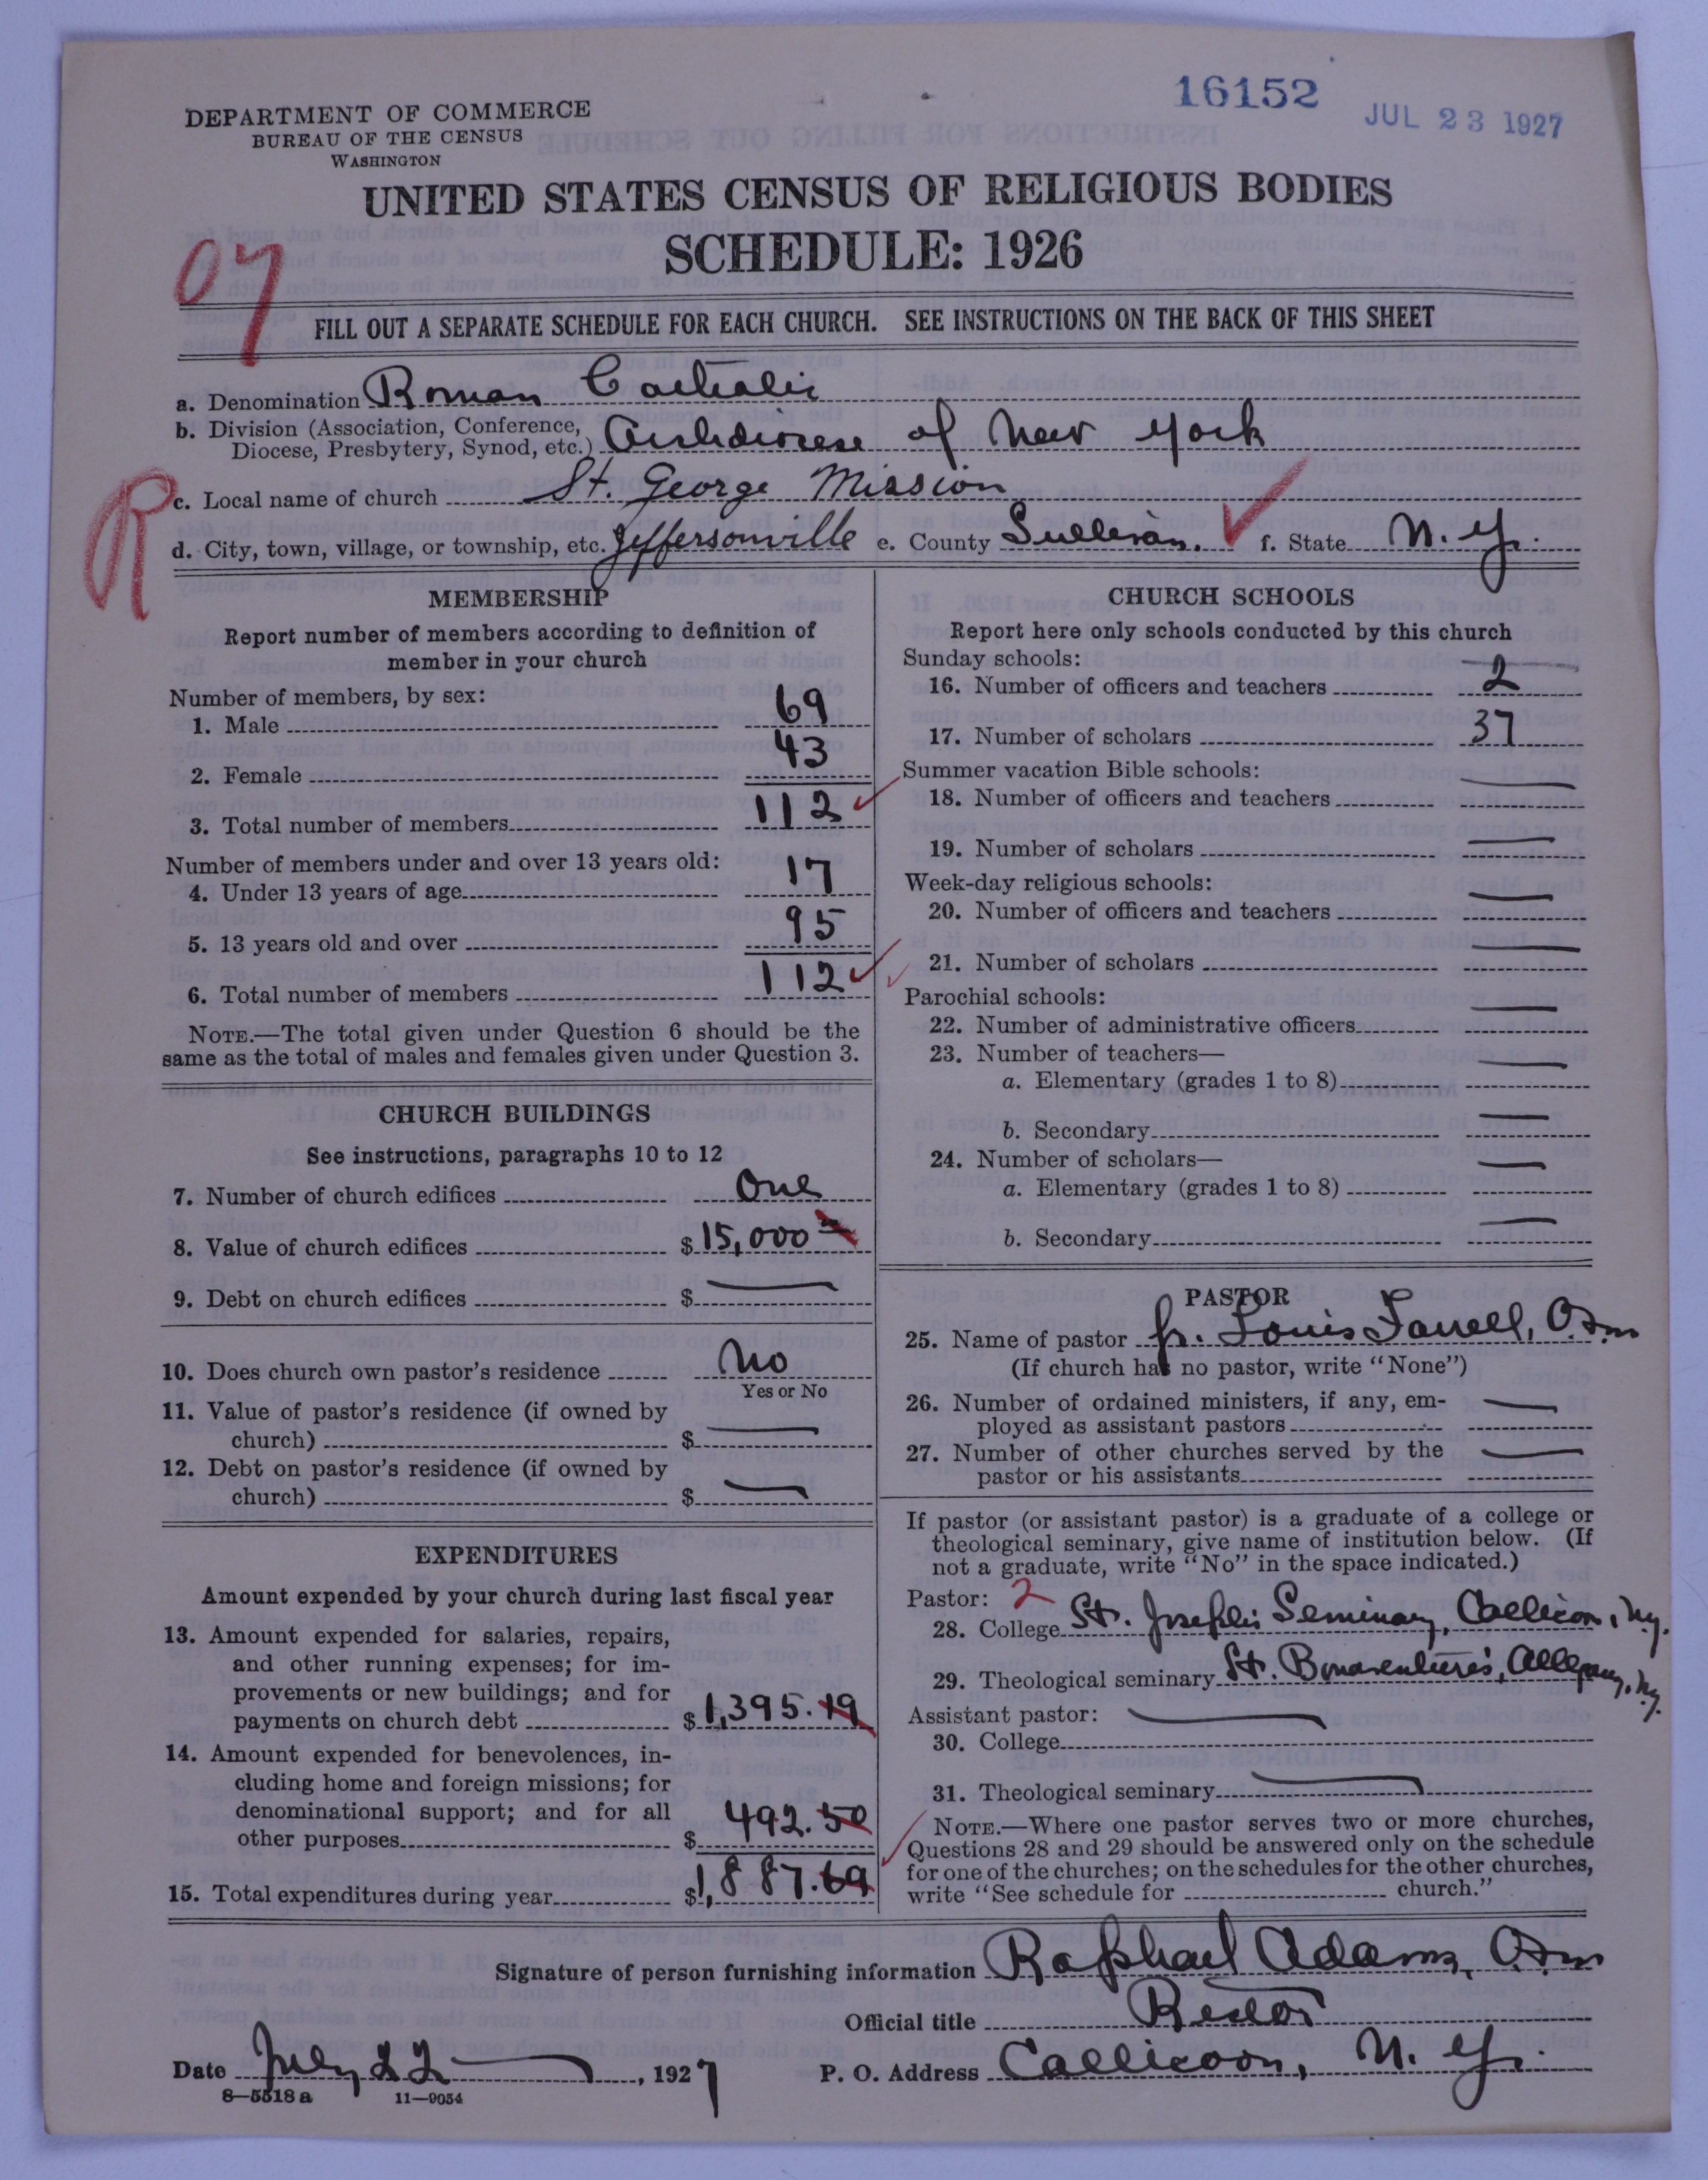 16152
JUL 23 1927
DEPARTMENT OF COMMERCE
BUREAU OF THE CENSUS
WASHINGTON
UNITED STATES CENSUS OF RELIGIOUS BODIES
SCHEDULE: 1926
07
FILL OUT A SEPARATE SCHEDULE FOR EACH CHURCH. SEE INSTRUCTIONS ON THE BACK OF THIS SHEET
a. Denomination Roman Catholic
b. Division (Association, Conference,
Diocese, Presbytery, Synod, etc.) Archdiocese of New York
R
c. Local name of church St. George Mission
d. City, town, village, or township, etc. Jeffersonville e. County Sullivan. f. State N. Y.
MEMBERSHIP
Report number of members according to definition of
member in your church
Number of members, by sex:
1. Male 69
2. Female 43
3. Total number of members 112
Number of members under and over 13 years old:
4. Under 13 years of age 17
5. 13 years old and over 95
6. Total number of members 112
NOTE.—The total given under Question 6 should be the
same as the total of males and females given under Question 3.
CHURCH BUILDINGS
See instructions, paragraphs 10 to 12
7. Number of church edifices One
8. Value of church edifices $ 15,000
9. Debt on church edifices $ —
10. Does church own pastor's residence No
Yes or No
11. Value of pastor's residence (if owned by
church) $ —
12. Debt on pastor's residence (if owned by
church) $ —
EXPENDITURES
Amount expended by your church during last fiscal year
13. Amount expended for salaries, repairs,
and other running expenses; for im-
provements or new buildings; and for
payments on church debt $ 1,395.19
14. Amount expended for benevolences, in-
cluding home and foreign missions; for
denominational support; and for all
other purposes $ 492.50
15. Total expenditures during year $ 1,887.69
CHURCH SCHOOLS
Report here only schools conducted by this church
Sunday schools:
16. Number of officers and teachers 2
17. Number of scholars 37
Summer vacation Bible schools:
18. Number of officers and teachers —
19. Number of scholars —
Week-day religious schools:
20. Number of officers and teachers —
21. Number of scholars —
Parochial schools:
22. Number of administrative officers —
23. Number of teachers—
a. Elementary (grades 1 to 8) —
b. Secondary —
24. Number of scholars—
a. Elementary (grades 1 to 8) —
b. Secondary —
PASTOR
25. Name of pastor fr. Louis Farrell, O.F.M.
(If church has no pastor, write "None")
26. Number of ordained ministers, if any, em-
ployed as assistant pastors —
27. Number of other churches served by the
pastor or his assistants —
If pastor (or assistant pastor) is a graduate of a college or
theological seminary, give name of institution below. (If
not a graduate, write "No" in the space indicated.)
Pastor: 2
28. College St. Joseph's Seminary, Callicoon, N.Y.
29. Theological seminary St. Bonaventure's, Allegany, N.Y.
Assistant pastor: —
30. College
31. Theological seminary —
NOTE.—Where one pastor serves two or more churches,
Questions 28 and 29 should be answered only on the schedule
for one of the churches; on the schedules for the other churches,
write "See schedule for church."
Signature of person furnishing information Raphael Adams, O.F.M.
Official title Rector
Date July 22, 1927 P. O. Address Callicoon, N. Y.
8—5518 a 11—9054